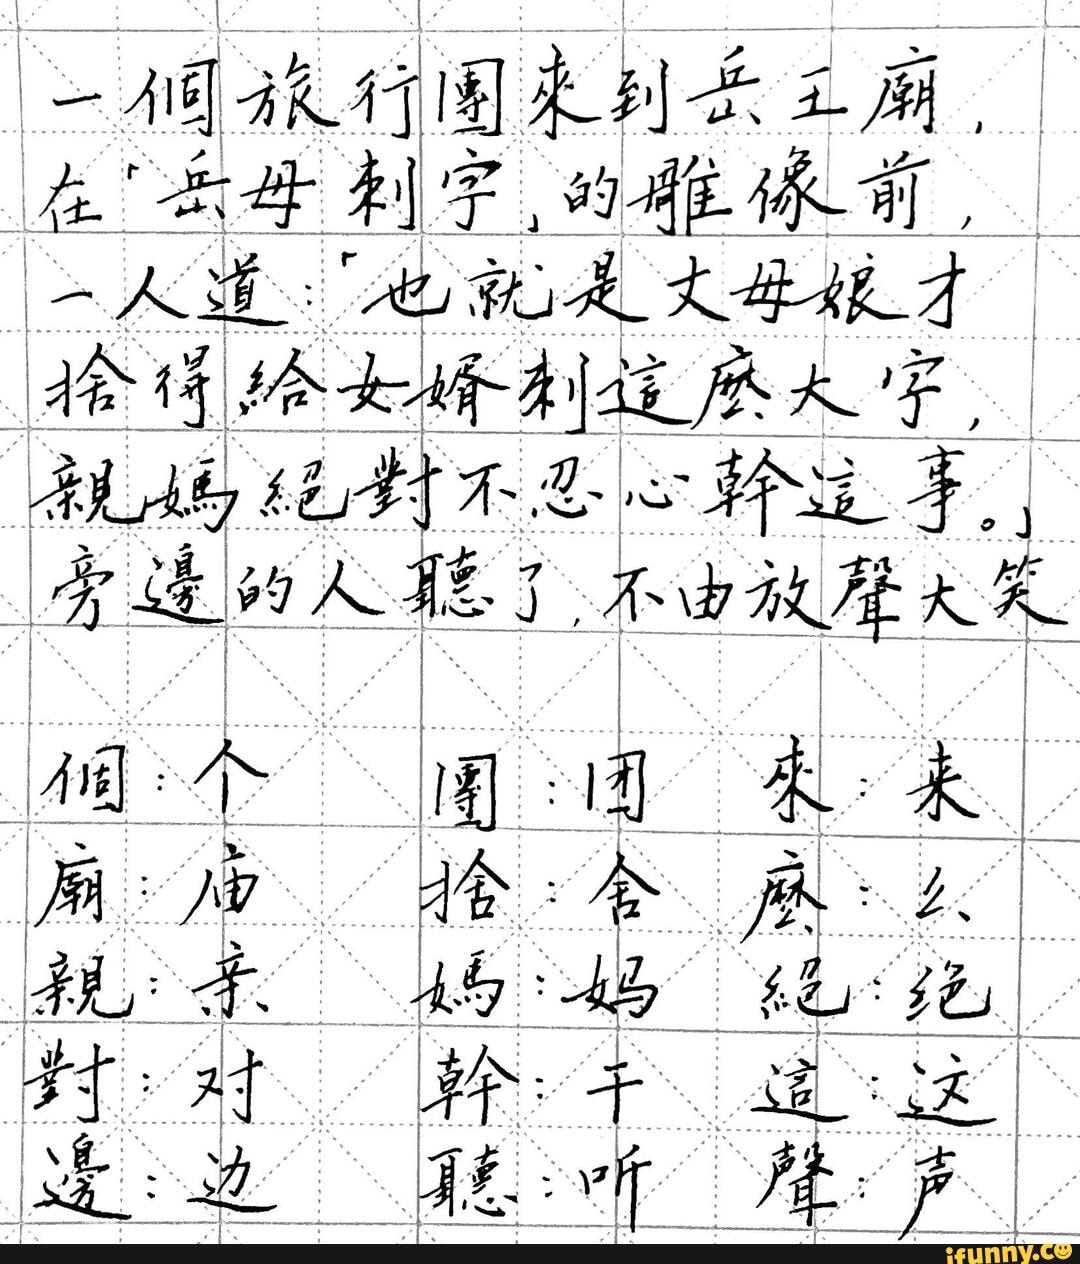 一個旅行團來到岳王廟,
在「岳母刺字」的雕像前,
一人道:「也就是丈母娘才
捨得給女婿刺這麼大字,
親媽絕對不忍心幹這事。」
旁邊的人聽了,不由放聲大笑
個:个 團:团 來:来
廟:庙 捨:舍 麼:么
親:亲 媽:妈 絕:绝
對:对 幹:干 這:这
邊:边 聽:听 聲:声
ifunny.co